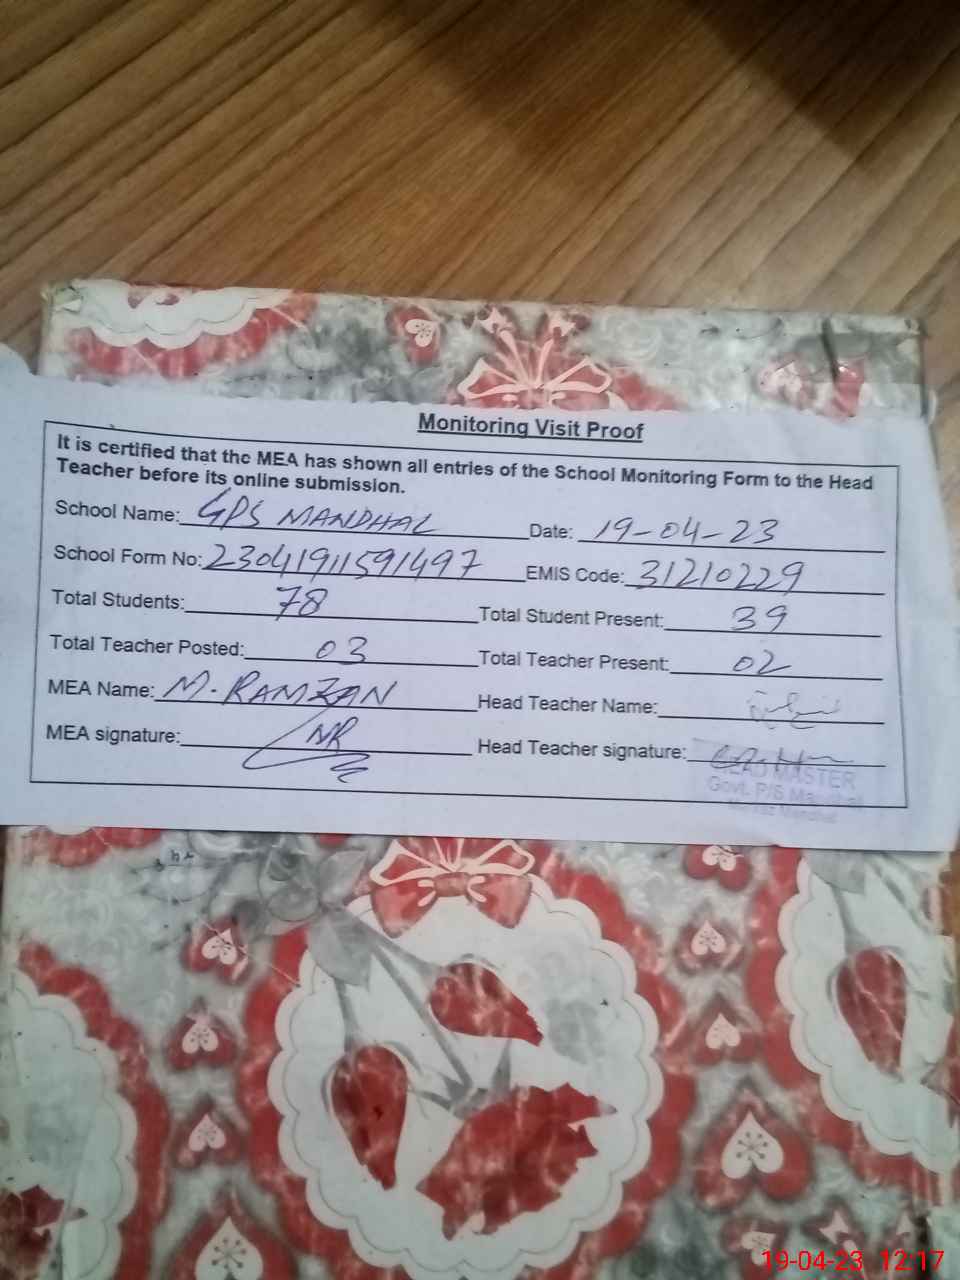 Monitoring Visit Proof
It is certified that the MEA has shown all entries of the School Monitoring Form to the Head
Teacher before its online submission.
School Name: GPS MANDHAL Date: 19-04-23
School Form No: 23041911591497 EMIS Code: 31210229
Total Students: 78 Total Student Present: 39
Total Teacher Posted: 03 Total Teacher Present: 02
MEA Name: M. RAMZAN Head Teacher Name:
MEA signature: Head Teacher signature:
HEAD MASTER
Govt. P/S Mandhal
19-04-23 12:17